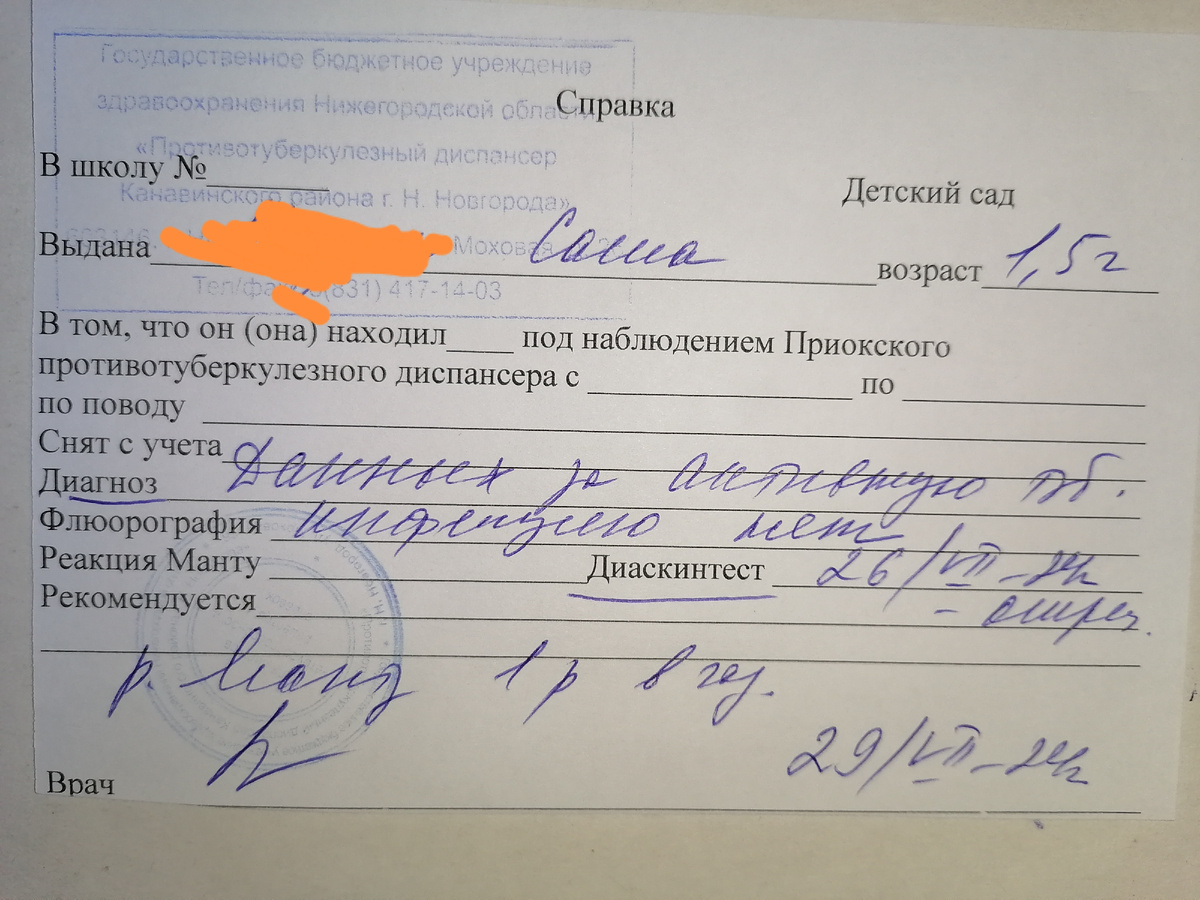 Государственное бюджетное учреждение
здравоохранения Нижегородской области
«Противотуберкулезный диспансер
Канавинского района г. Н. Новгорода»
Моховая
Тел/фа (831) 417-14-03
Справка
В школу №
Детский сад
Выдана Саша возраст 1,5 г
В том, что он (она) находил____ под наблюдением Приокского
противотуберкулезного диспансера с ____ по ____
по поводу
Снят с учета
Диагноз Данных за активную тб.
Флюорография инфекцию нет
Реакция Манту Диаскинтест 26/VII-24г
Рекомендуется - отриц.
р. Манту 1 р в год.
29/VII-24г
Врач